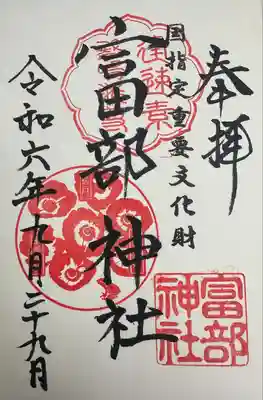 奉拝
国指定重要文化財
富部神社
令和六年九月二十九日
富部
神社